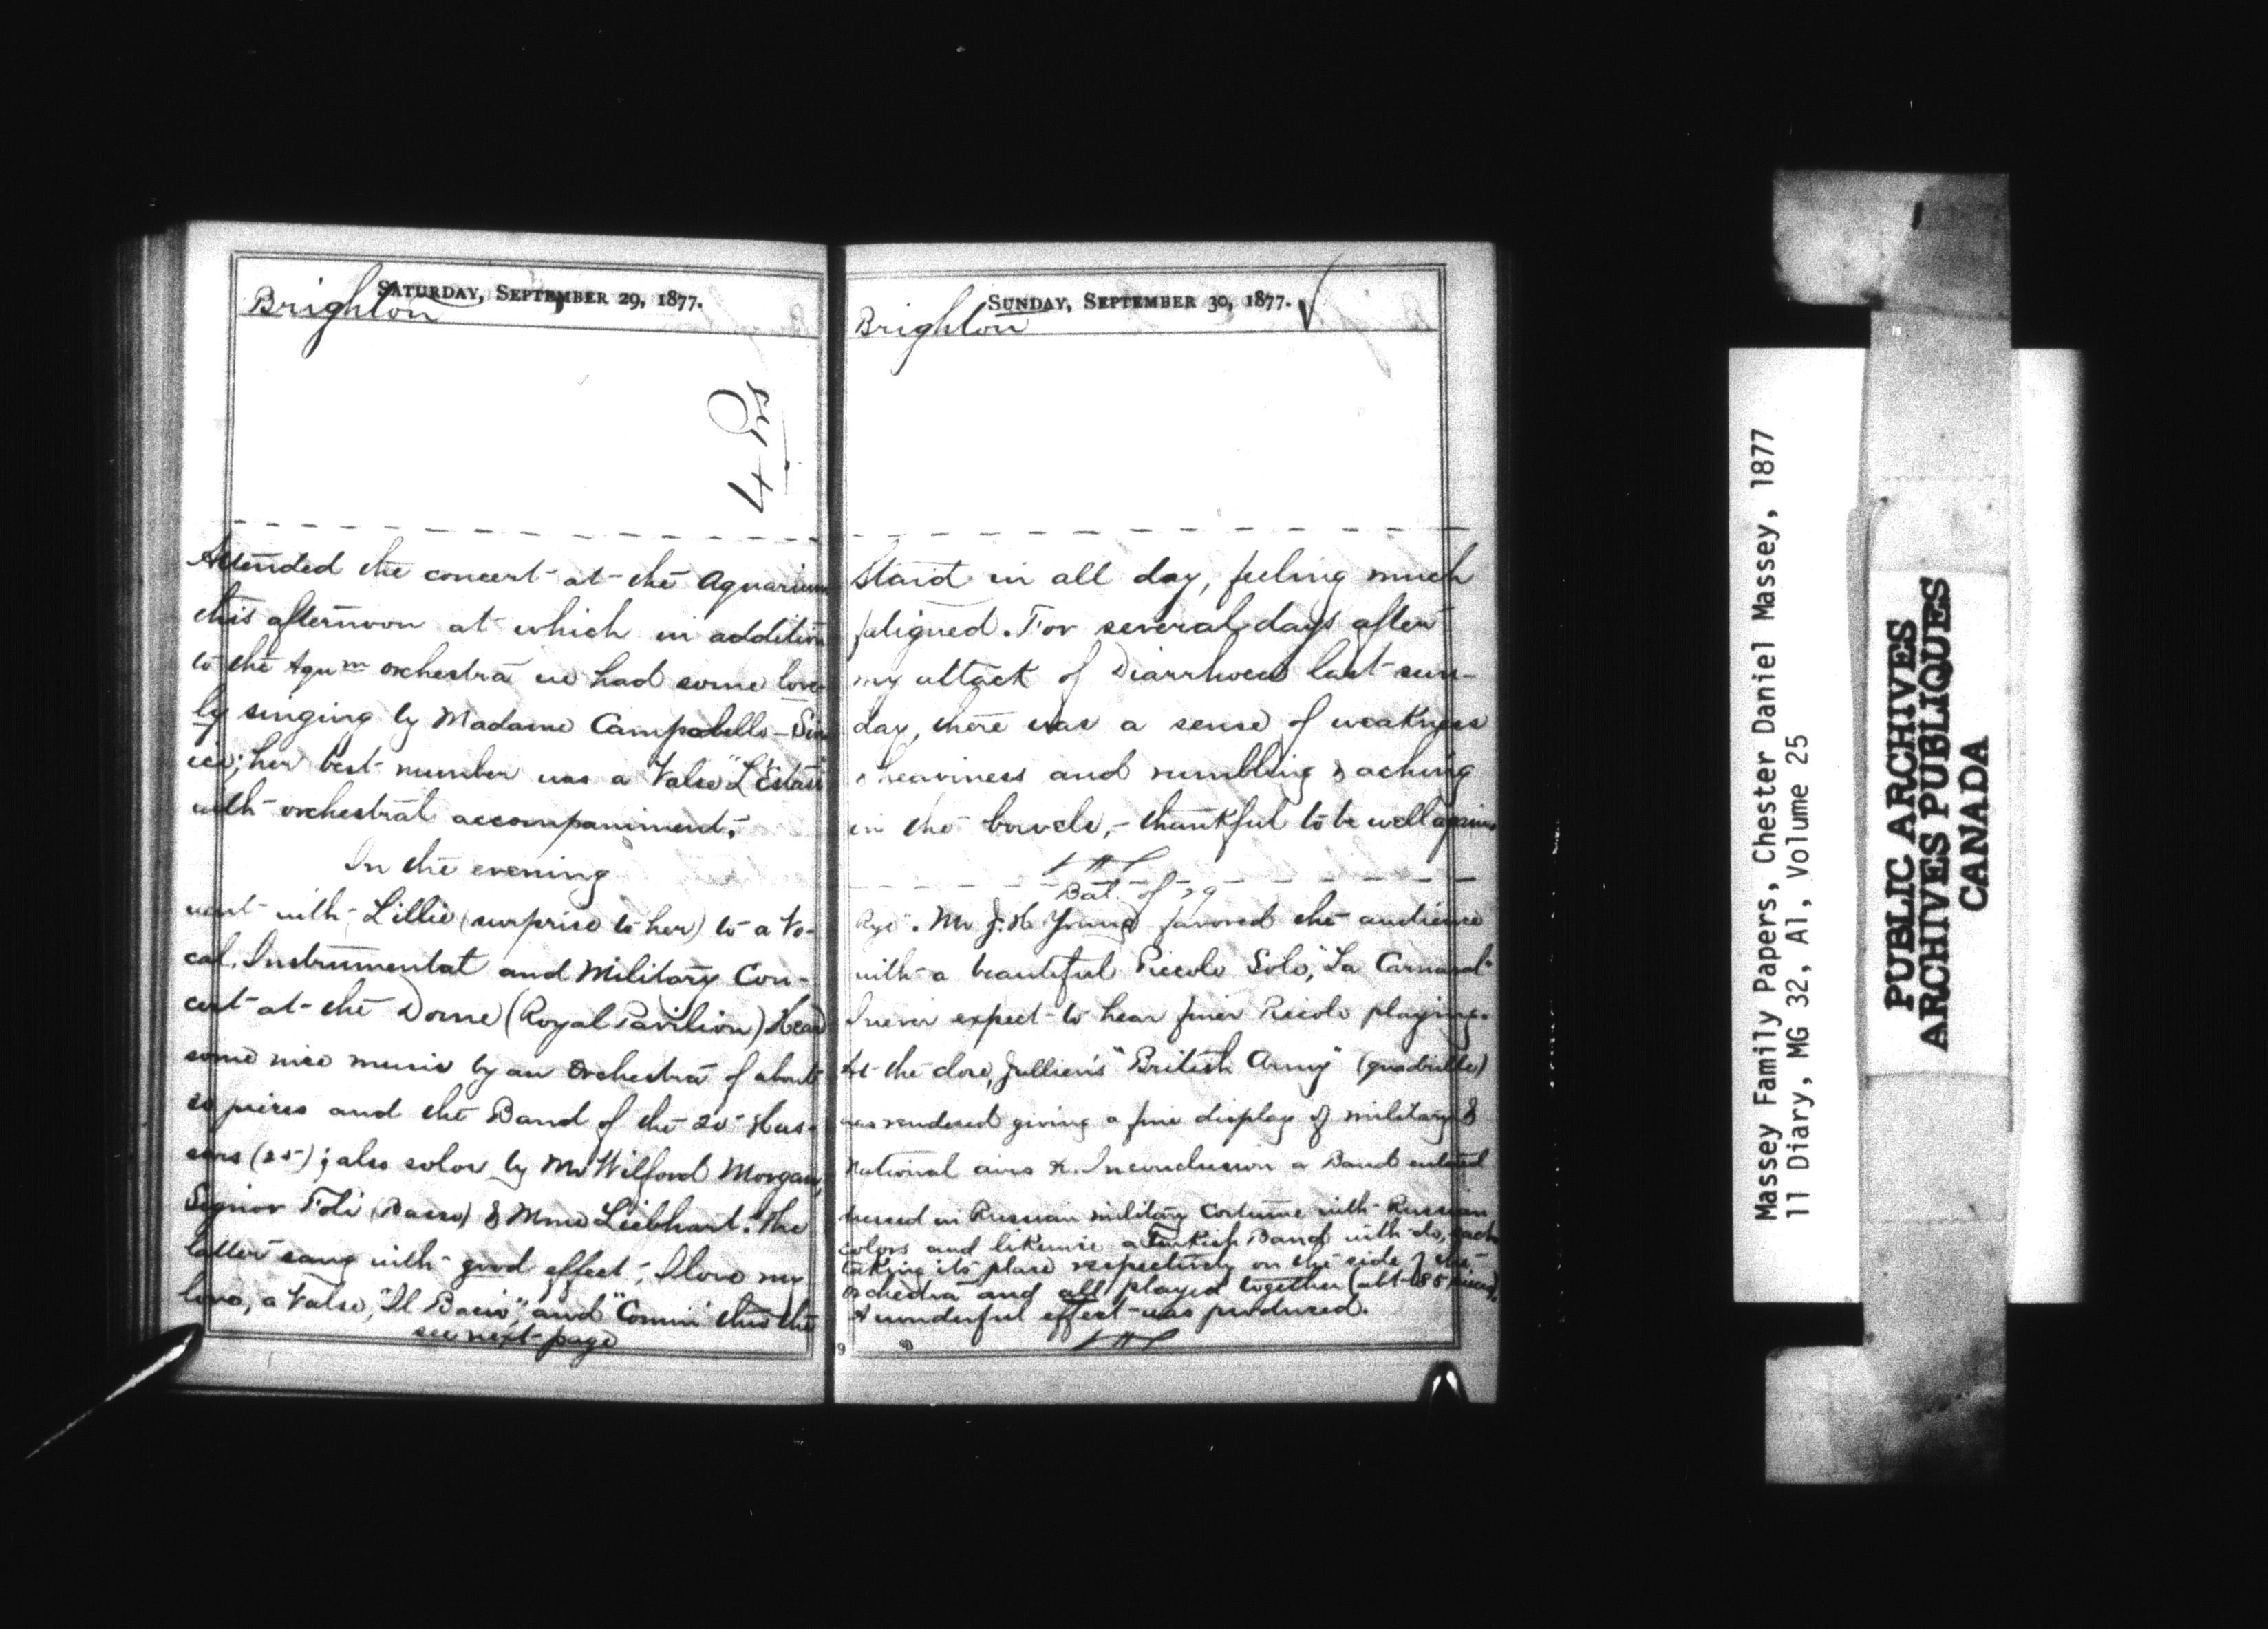 SATURDAY, SEPTEMBER 29, 1877.
Brighton
Attended the concert at the Aquarium
this afternoon at which in addition
to the Aqum orchestra we had some love-
ly singing by Madame Campobello-Sin
ico; her best number was a Valse "L'Estasi"
with orchestral accompaniment.
In the evening
went with Lillie (surprise to her) to a Vo-
cal, Instrumental and Military Con-
cert at the Dome (Royal Pavilion) Heard
some nice music by an Orchestra of about
pieces and the Band of the 20 Hus-
sars (25); also solos by Mr Wilford Morgan,
Signor Foli (Basso) & Mme Liebhart. The
latter sang with good effect, I love my
love, a Valse, "Il Bacio", and "Comin' thro the
see next page
SUNDAY, SEPTEMBER 30, 1877.
Brighton
Staid in all day, feeling much
fatigued. For several days after
my attack of Diarrhoea last Sun-
day, there was a sense of weakness
& heaviness and rumbling & aching
in the bowels, - thankful to be well again
Bal. of 29
Rye". Mr J. H. Young favored the audience
with a beautiful Piccolo Solo, "La Carnaval"
I never expect to hear finer Piccolo playing.
At the close, Jullien's "British Army" (quadrille)
was rendered giving a fine display of military &
national airs &. In conclusion a Band entered
dressed in Russian military Costume with Russian
colors and likewise a Turkish Band with do, each
taking its place respectively on the side of the
orchestra and all played together (abt 85 pieces).
A wonderful effect was produced.
Massey Family Papers, Chester Daniel Massey, 1877
11 Diary, MG 32, A1, Volume 25
PUBLIC ARCHIVES
ARCHIVES PUBLIQUES
CANADA